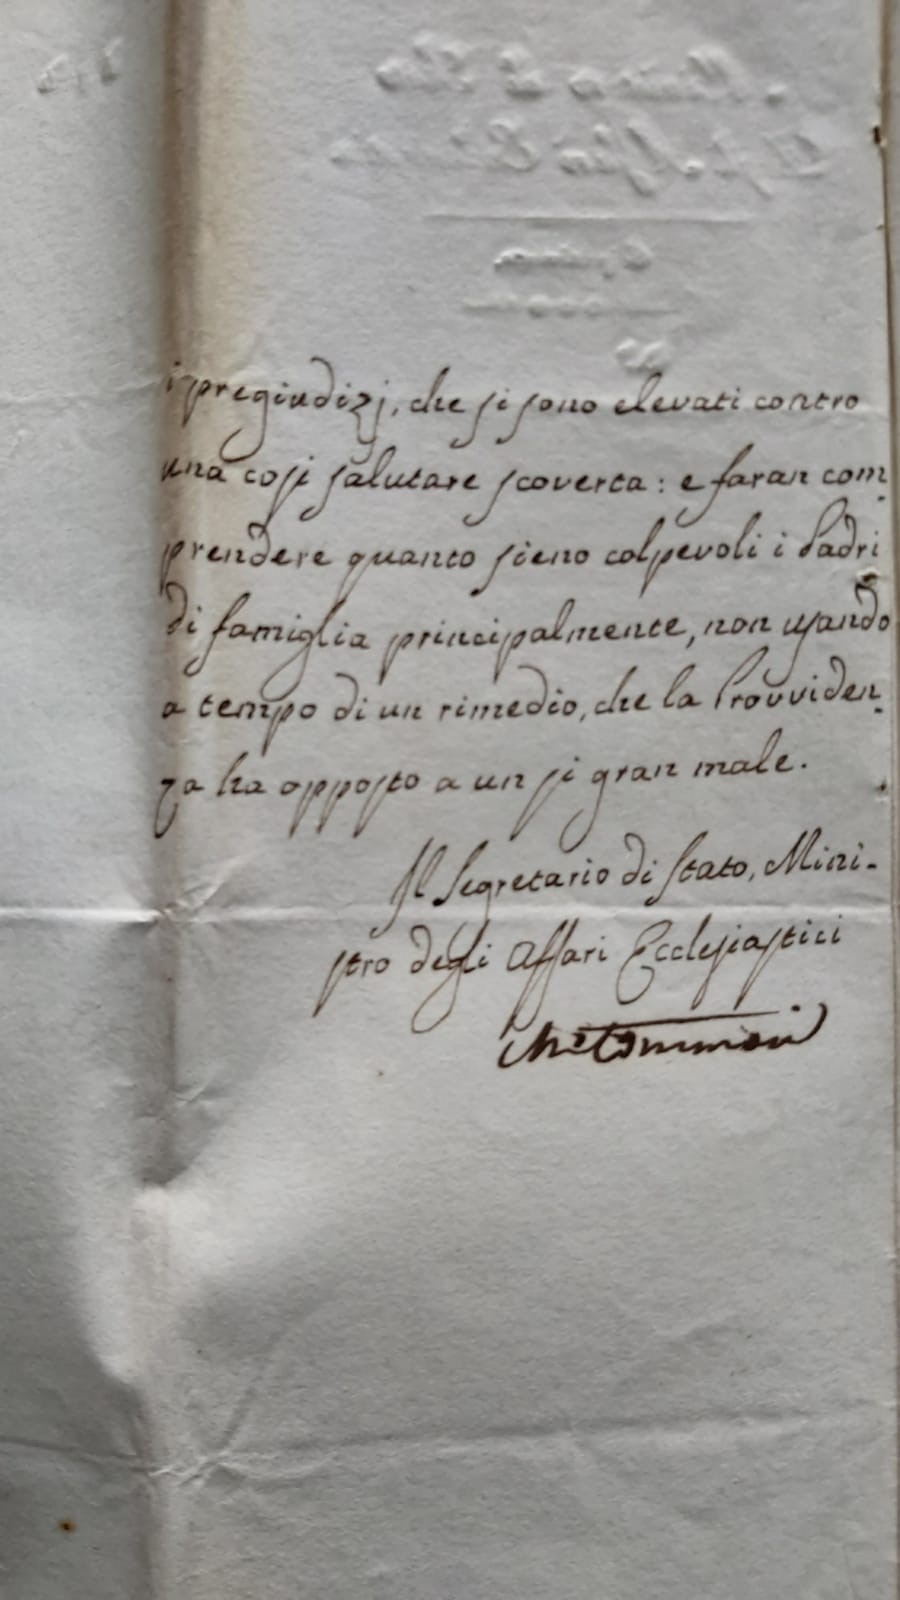 i pregiudizj, che si sono elevati contro
una così salutare scoverta: e faran com
prendere quanto sieno colpevoli i Padri
di famiglia principalmente, non usando
a tempo di un rimedio, che la Provviden
za ha opposto a un sì gran male.
Il Segretario di Stato, Mini-
stro degli Affari Ecclesiastici